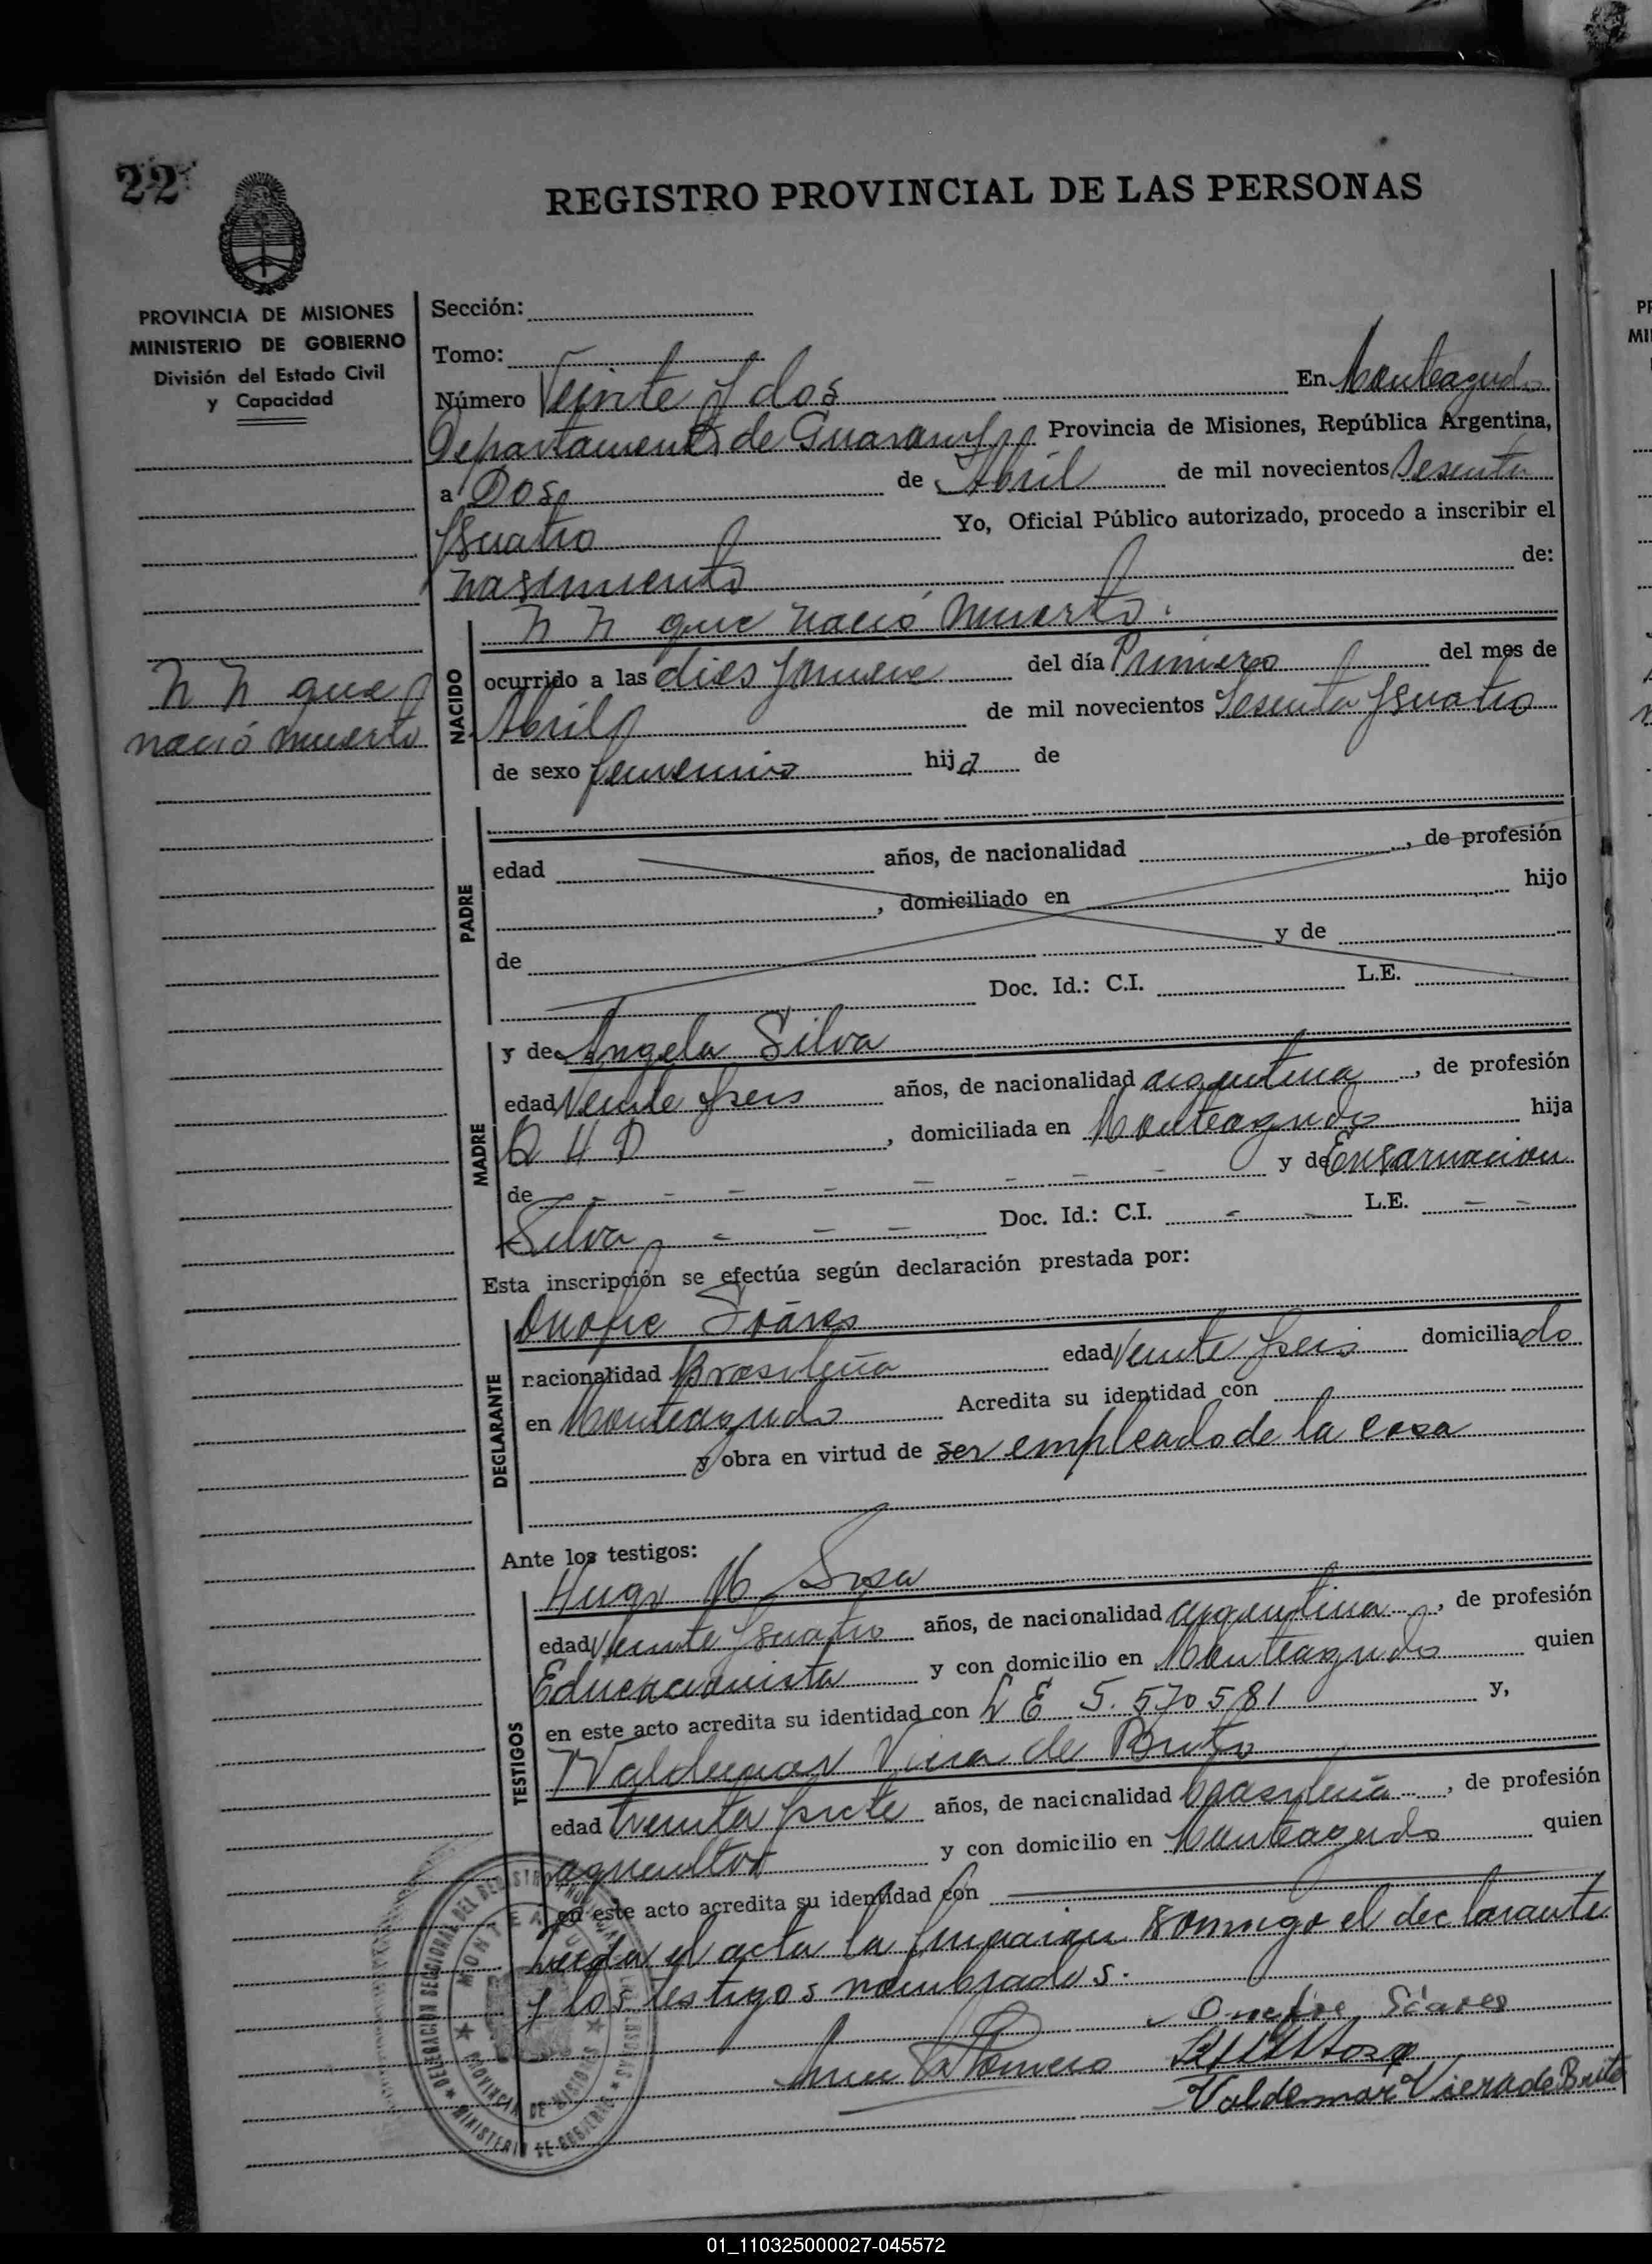 22
REGISTRO PROVINCIAL DE LAS PERSONAS
PROVINCIA DE MISIONES
MINISTERIO DE GOBIERNO
División del Estado Civil
y Capacidad
Sección:
Tomo:
Número Veinte y dos En Monteagudo
Departamento de Guaraní Provincia de Misiones, República Argentina,
a Dos de Abril de mil novecientos Sesenta
y Cuatro Yo, Oficial Público autorizado, procedo a inscribir el
nasimiento de:
N N que nació muerto.
N N que
nació muerto
NACIDO
ocurrido a las dies y nueve del día Primero del mes de
Abril de mil novecientos Sesenta y Cuatro
de sexo femenino hija de
PADRE
edad años, de nacionalidad , de profesión
, domiciliado en hijo
de y de
Doc. Id.: C.I. L.E.
MADRE
y de Angela Silva
edad Veinte y seis años, de nacionalidad argentina , de profesión
Q H D , domiciliada en Monteagudo hija
de - - - - - - - - y de Encarnacion
Silva - - - Doc. Id.: C.I. - - L.E. - -
Esta inscripción se efectúa según declaración prestada por:
DECLARANTE
Onofre Soáres
nacionalidad Brasileña edad Veinte y seis domiciliado
en Monteagudo Acredita su identidad con
y obra en virtud de ser empleado de la casa
Ante los testigos:
TESTIGOS
Hugo M Sosa
edad Veinte y Cuatro años, de nacionalidad argentina , de profesión
Educacionista y con domicilio en Monteagudo quien
en este acto acredita su identidad con L E 5.570581 y,
Valdemar Viera de Brito
edad treinta y siete años, de nacionalidad brasileña , de profesión
agricultor y con domicilio en Monteagudo quien
en este acto acredita su identidad con
Leida el acta la firman conmigo el declarante
y los testigos nombrados.
Onofre Soares
Romero
Valdemar Viera de Brito
DELEGACIÓN SECCIONAL DEL REGISTRO PROVINCIAL DE LAS PERSONAS
MONTEAGUDO
PROVINCIA DE MISIONES
MINISTERIO DE GOBIERNO
01_110325000027-045572